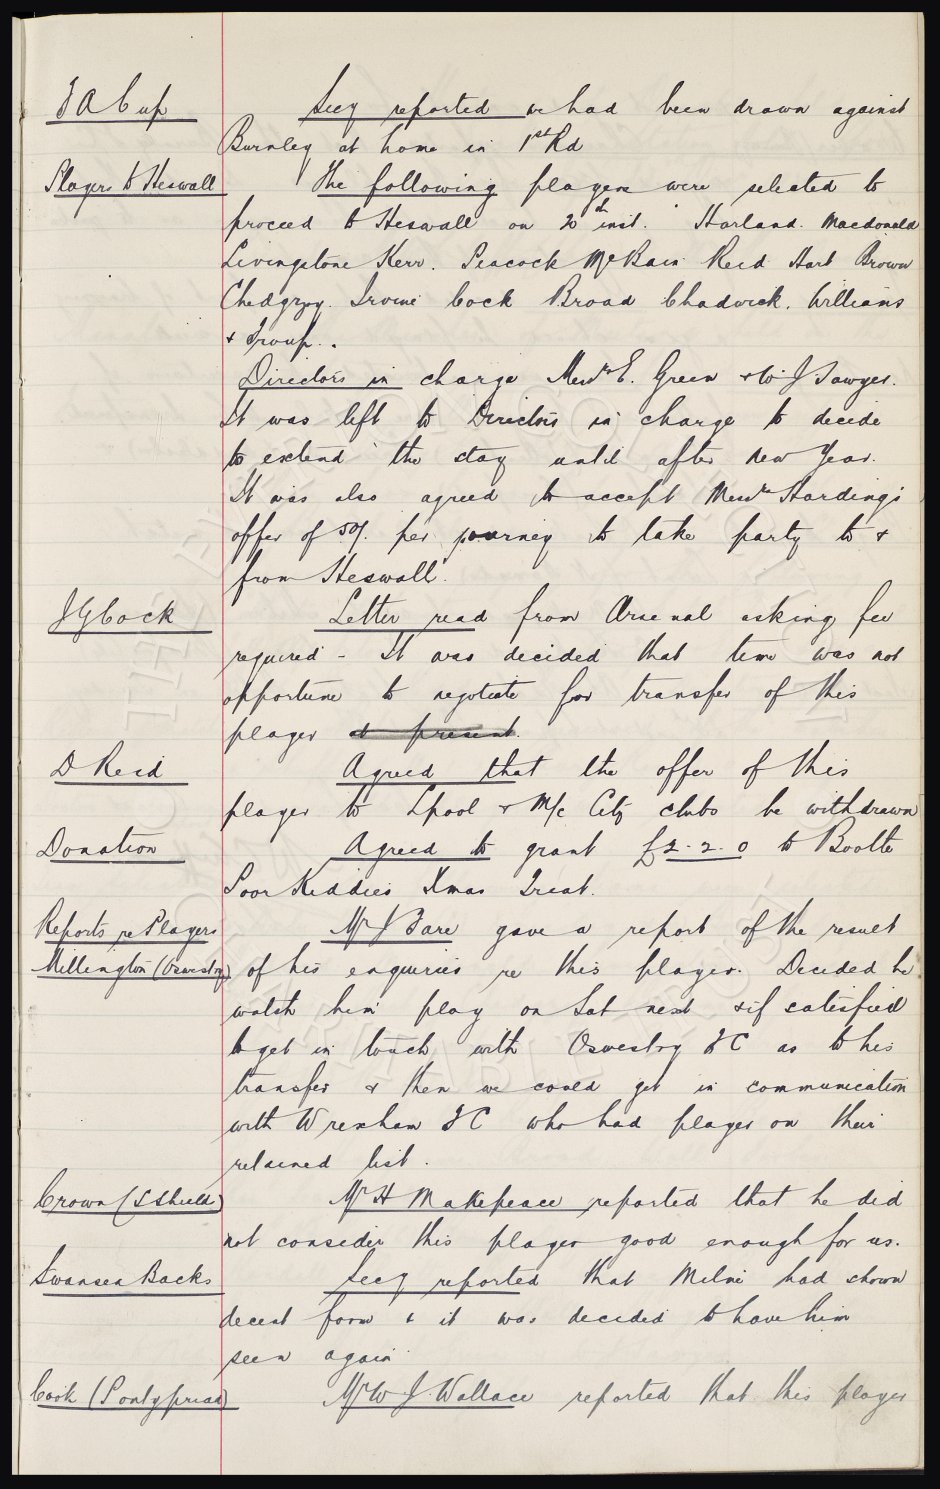 F A Cup Secy reported we had been drawn against
Burnley at home in 1st Rd
Players to Heswall The following players were selected to
proceed to Heswall on 20th inst. Harland. Macdonald
Livingstone Kerr. Peacock McBain Reid Hart Brown
Chedgzoy. Irvine Cock Broad Chadwick. Williams
& Troup.
Directors in charge Messrs E. Green & W J Sawyer.
It was left to Directors in charge to decide
to extend the stay until after New Year.
It was also agreed to accept Messrs Hardings
offer of 50/- per journey to take party to &
from Heswall.
J G Cock Letter read from Arsenal asking fee
required - It was decided that time was not
opportune to negotiate for transfer of this
player at present.
D Reid Agreed that the offer of this
player to Lpool & M/c City clubs be withdrawn
Donation Agreed to grant £2-2-0 to Bootle
Poor Kiddies Xmas Treat.
Reports re Players Mr J Fare gave a report of the result
Millington (Oswestry) of his enquiries re this player. Decided he
watch him play on Sat next & if satisfied
to get in touch with Oswestry F C as to his
transfer & then we could get in communication
with Wrexham F C who had player on their
retained list.
Crown (S Shields) Mr H Makepeace reported that he did
not consider this player good enough for us.
Swansea Backs Secy reported that Milne had shown
decent form & it was decided to have him
seen again
Cook (Pontypridd) Mr W J Wallace reported that this player